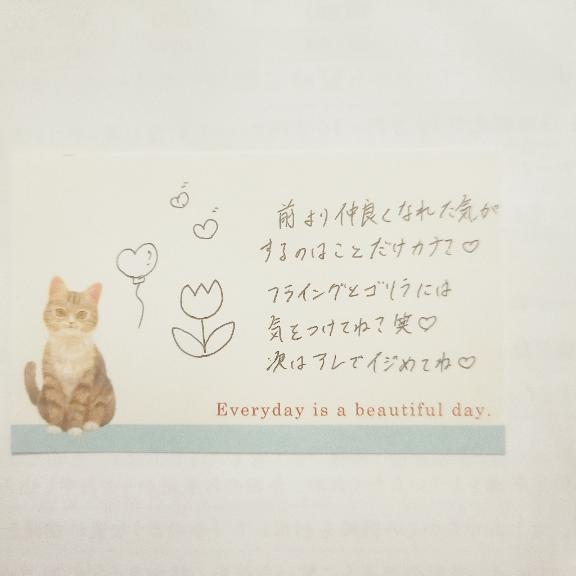 前より仲良くなれた気が
するのはことだけカナ?♡
フライングとゴリラには
気をつけてね?笑♡
次はアレでイジめてね♡
?
Everyday is a beautiful day.